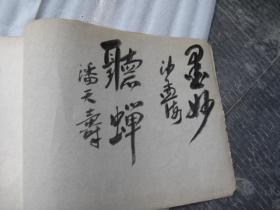 墨妙
沙孟海
聽蟬
潘天壽